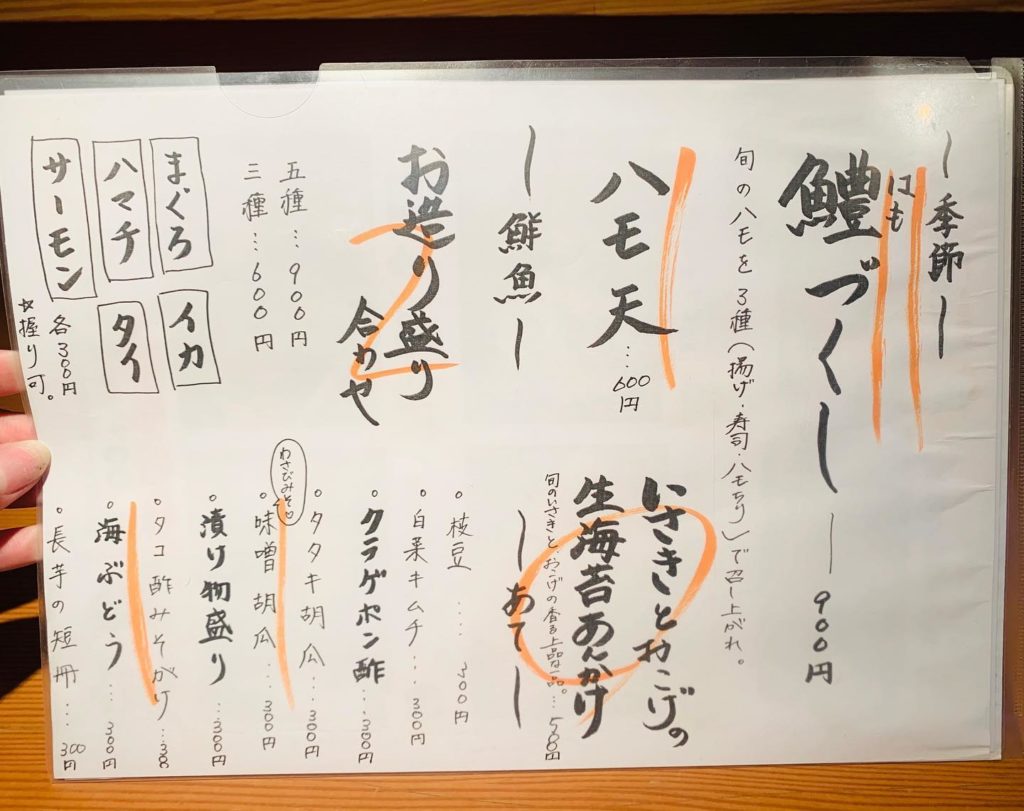 〜季節〜
はも
鱧づくし 〜 900円
旬のハモを3種(揚げ・寿司・ハモちり)で召し上がれ。
ハモ天…600円
〜鮮魚〜
お造り盛り
合わせ
五種…900円
三種…600円
まぐろ
イカ
ハマチ
タイ
サーモン
各300円
☆握り可。
いさきとおこげの
生海苔あんかけ
旬のいさきと、おこげの香る上品な一品。…500円
〜あて〜
・枝豆…300円
・白菜キムチ…300円
・クラゲポン酢…300円
・タタキ胡瓜…300円
わさびみそ♡
・味噌胡瓜…300円
・漬け物盛り…300円
・タコ酢みそがけ…300
・海ぶどう…300円
・長芋の短冊…300円